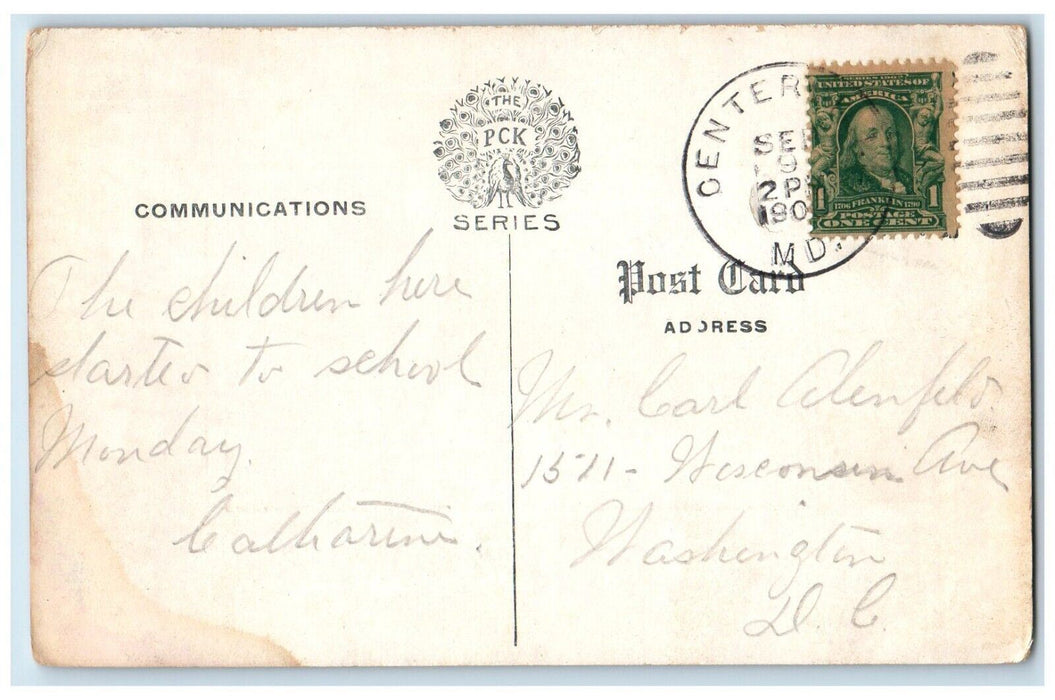 THE
PCK
SERIES
COMMUNICATIONS
The children here
started to school
Monday.
Catharine.
CENTER
SEP
9
2P
190
MD.
SERIES 1902
UNITED STATES OF
AMERICA
1 1
1706 FRANKLIN 1790
POSTAGE
ONE CENT
Post Card
ADDRESS
Mr. Carl Alenfeld.
1511- Wisconsin Ave
Washington
D.C.